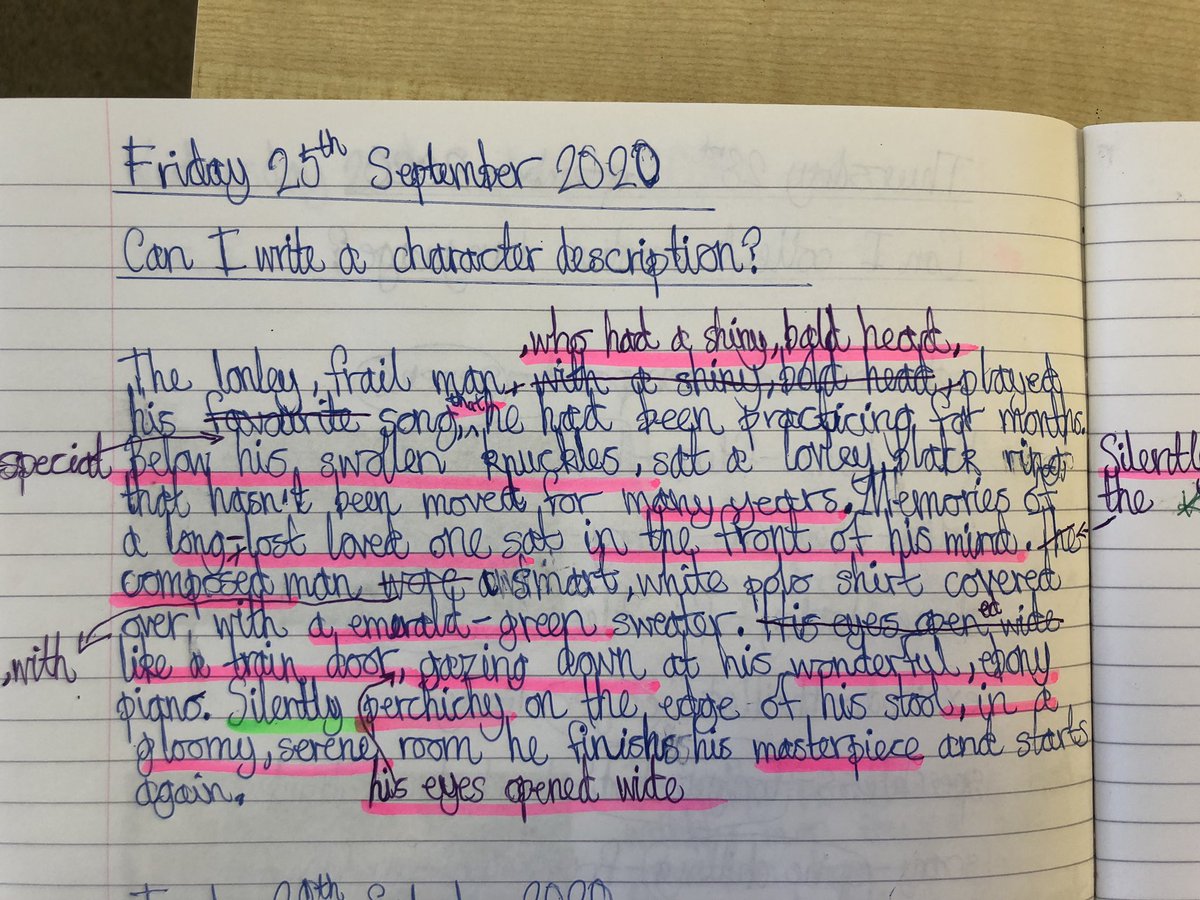 Friday 25th September 2020
Can I write a character description?
, who had a shiny, bald head,
The lonley, frail man, with a shiny, bald head, played
his favourite song, that he had been practicing for months.
special Below his swollen knuckles, sat a lovley black ring Silently
that hasn't been moved for many years. Memories of the
a long-lost loved one sat in the front of his mind. The
composed man wore a smart, white polo shirt covered
over with a emerald-green sweater. His eyes opened wide
,with like a train door, gazing down at his wonderful, ebony
piano. Silently perchichy on the edge of his stool, in a
gloomy, serene room he finishs his masterpiece and starts
again. his eyes opened wide